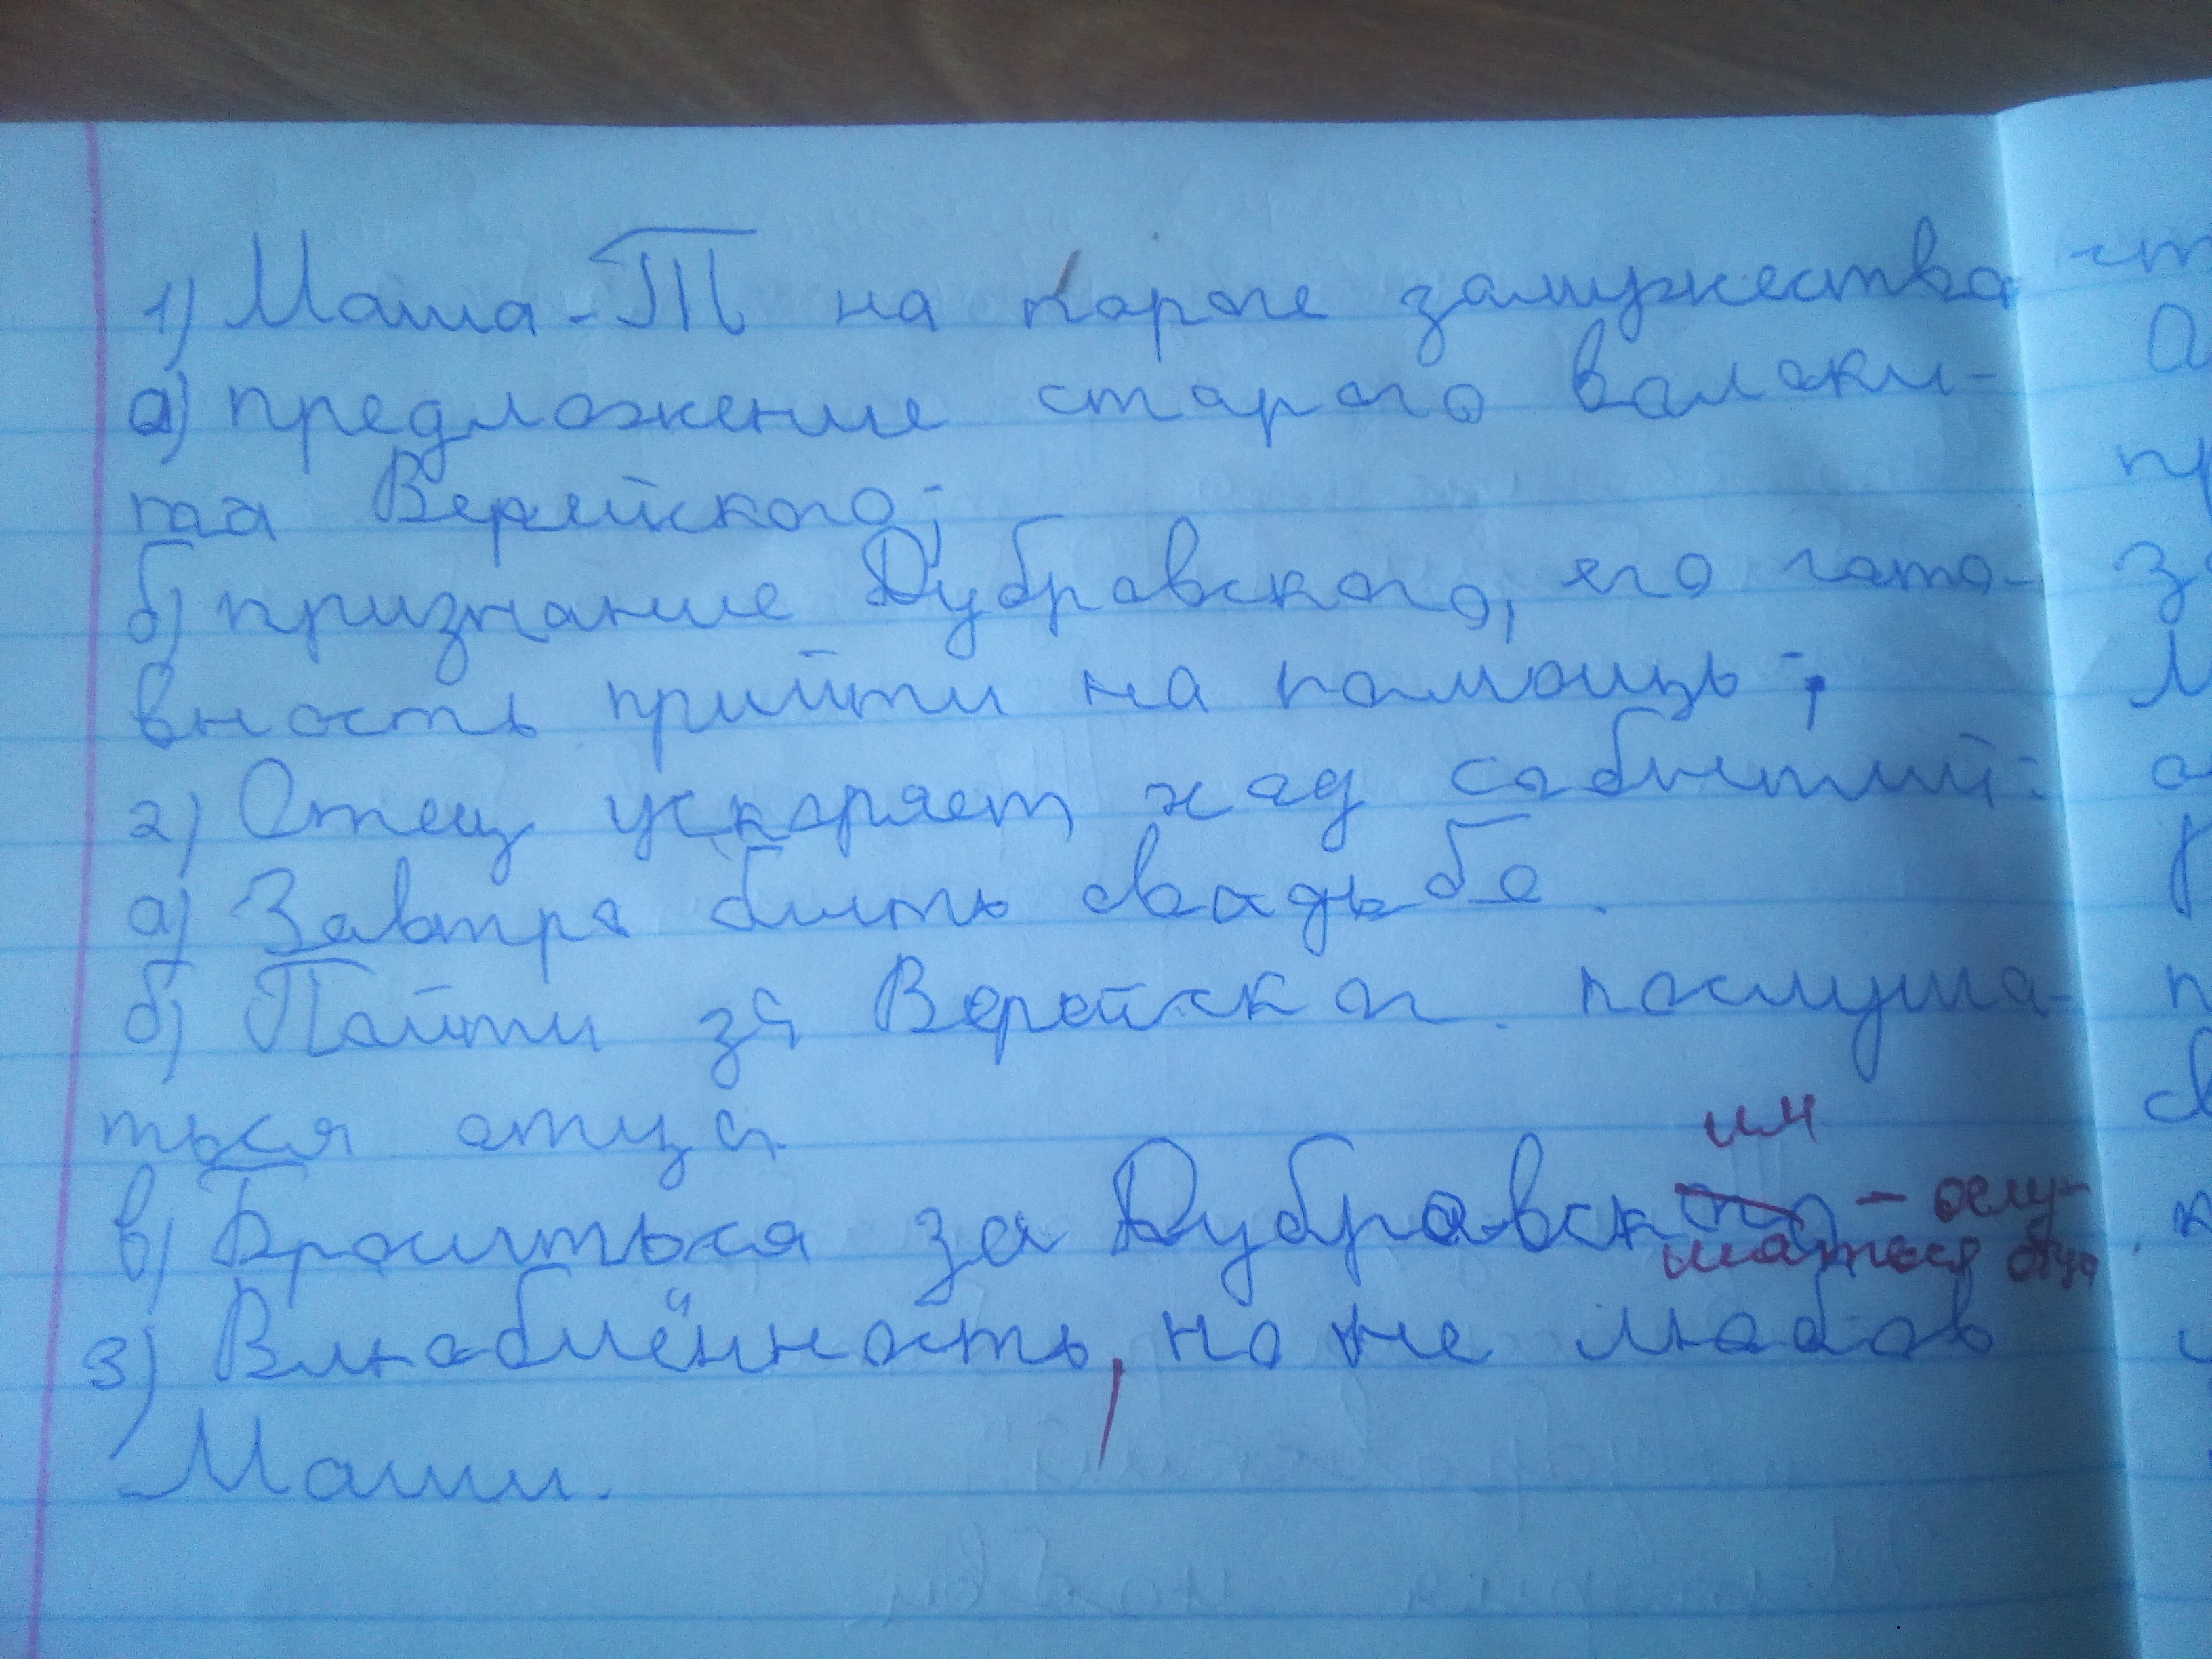 1) Маша-Т на пороге замужества
а) предложение старого волоки-
таа Верейского;
б) признание Дубровского, его гото-
вность прийти на помощь;
2) Отец ускоряет ход событий:
а) Завтра быть свадьбе.
б) Пойти за Верейског. послуша-
ться отца
им
в) Броситься за Дубровского - ослу-
шаться отца
3) Влюблённость, но не любов
Маши.